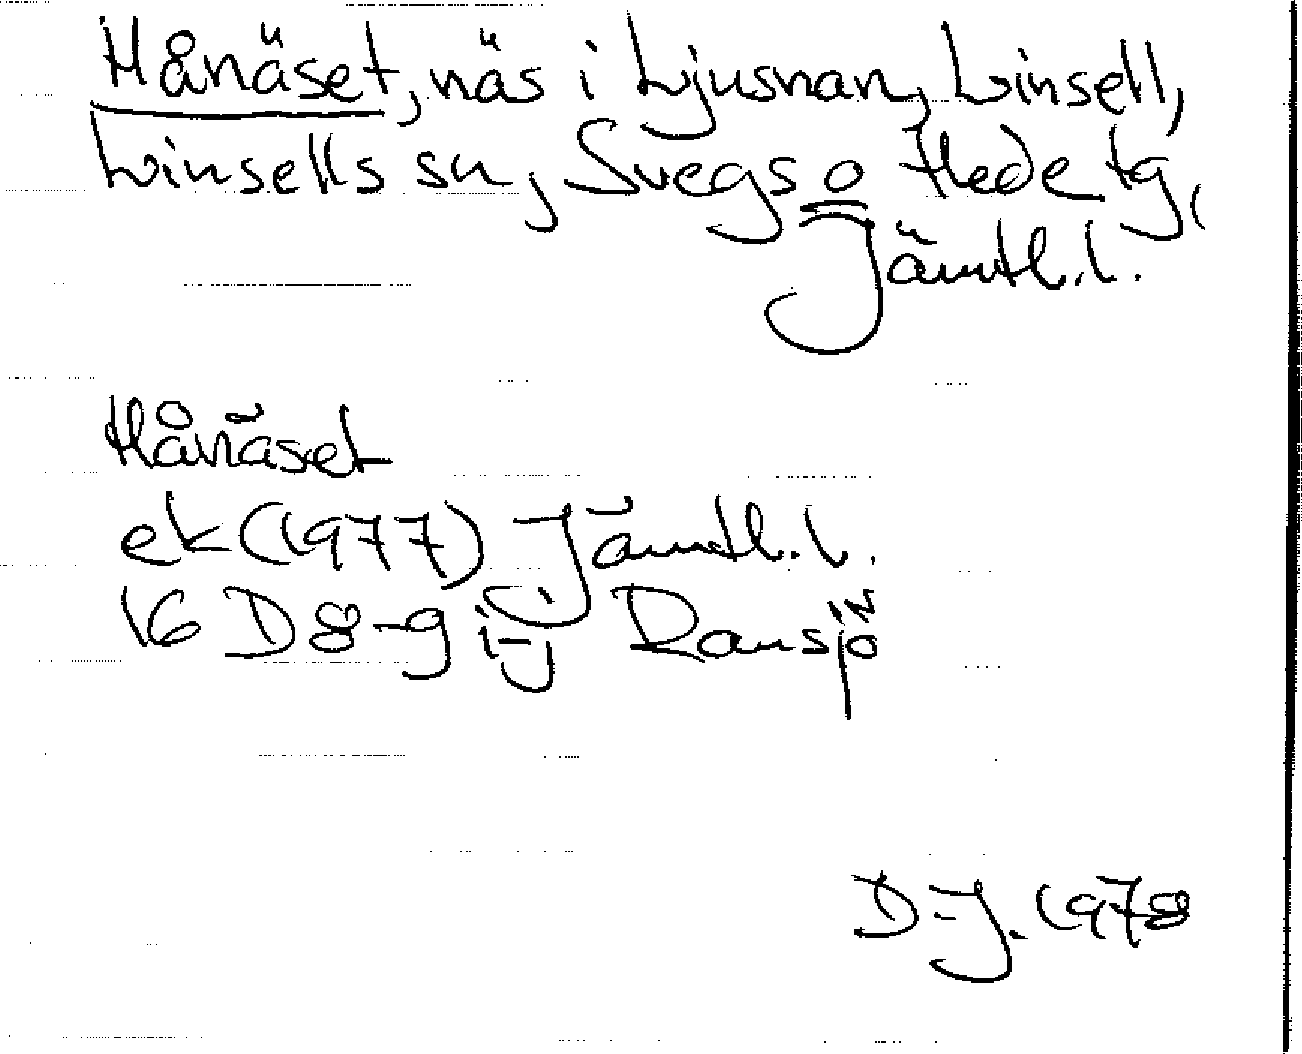 Hånäset, näs i Ljusnan, Linsell,
Linsells sn, Svegs o Hede tg,
Jämtl. l.
Hånäset
ek (1977) Jämtl. l.
16 D 8-9 i-j Ransjö
D-J. 1978